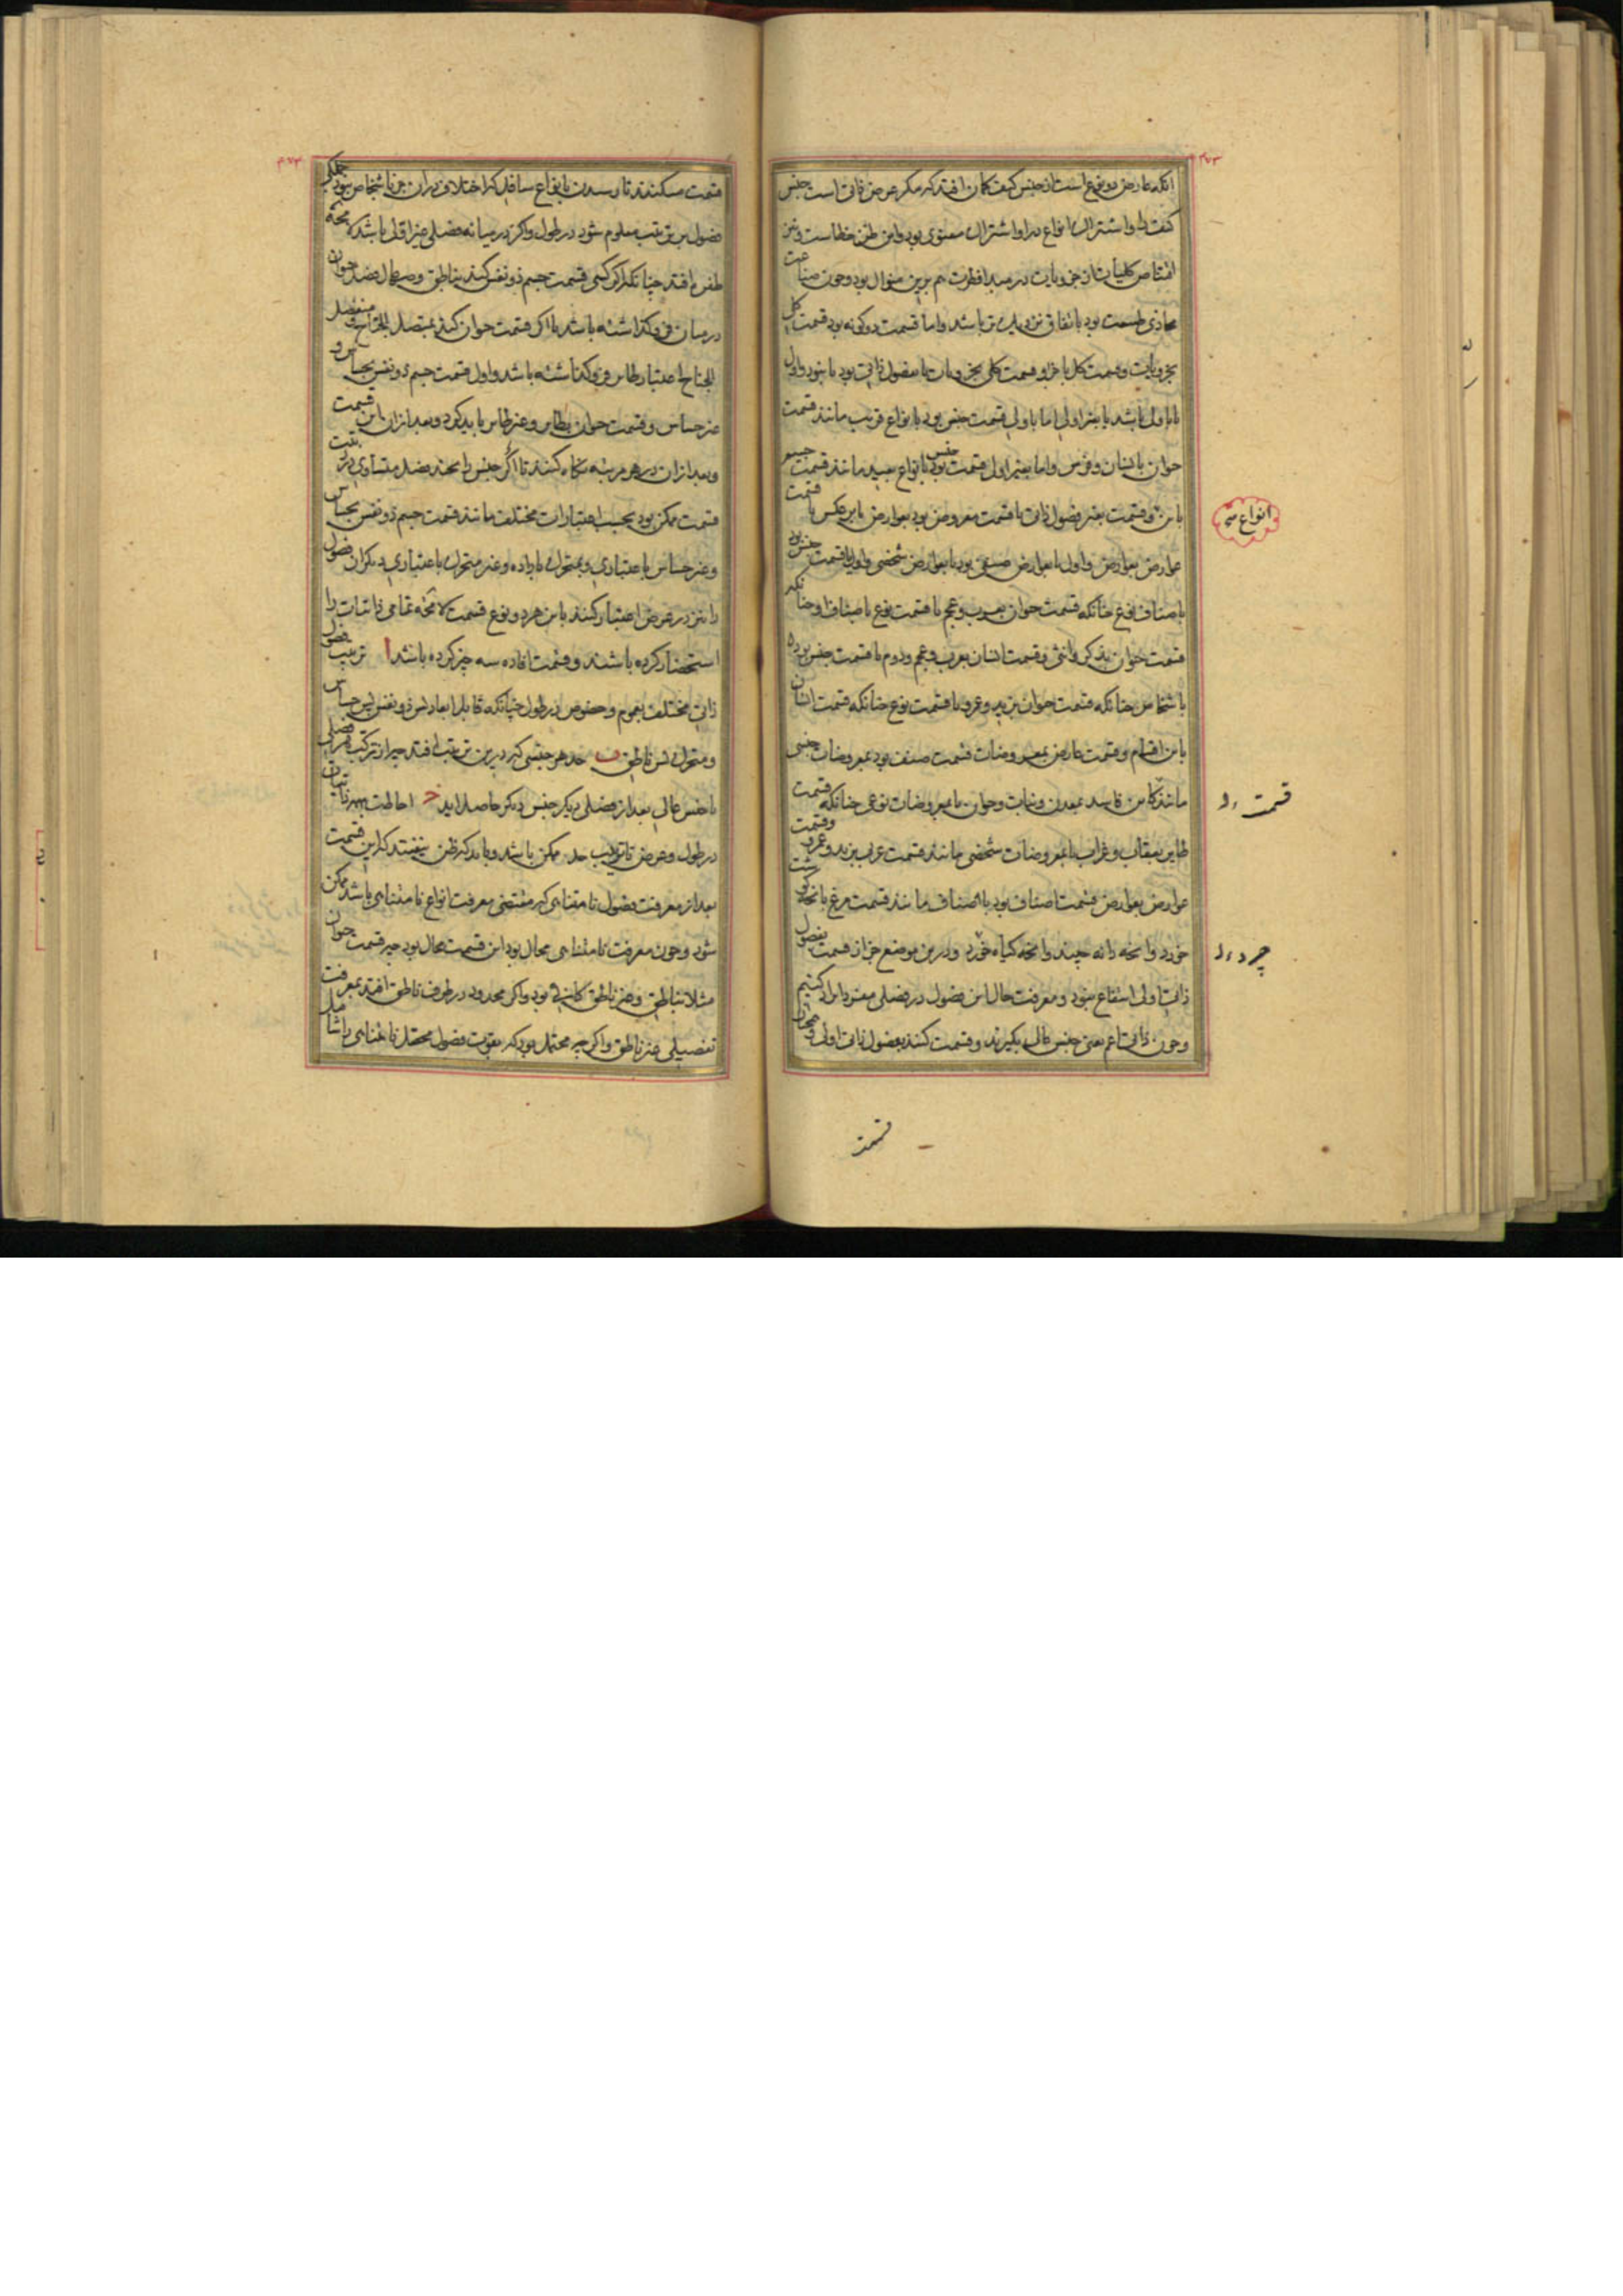 انکه عارض دو نوع است از جنس کیف کمان افتد که مکر عرض ذاتی است جنس
کیف را و اشتراک انواع در او اشتراک معنوی بود و این ظن خطاست و نیز
اقتناص کلیات از جزویات در مبدا فطرت هم برین منوال بود و چون صناعت
محاذی طبیعت بود باتفاق نزدیک تر باشد و اما قسمت دوکونه بود قسمت کل
بجزویات و قسمت کل باجزا و قسمت کلی بجزویات یا بفصول ذاتی بود یا نبود و اول
یا باولی باشد یا بغیر اولی اما باولی قسمت جنس بود بانواع قریب مانند قسمت
حیوان بانسان و فرس و اما بغیر اولی قسمت جنس بود بانواع بعید مانند قسمت جسم
باین و قسمت بغیر فصول ذاتی یا قسمت معروض بود بعوارض یا برعکس یا قسمت
عوارض بعوارض و اول یا بعوارض صنفی بود یا بعوارض شخصی و اول یا قسمت جنس بود
باصناف نوع چنانکه قسمت حیوان بعرب و عجم یا قسمت نوع باصناف او چنانکه
قسمت حیوان بذکر و انثی و قسمت انسان بعرب و عجم و دوم یا قسمت جنس بود
باشخاص چنانکه قسمت حیوان بزید و عمرو یا قسمت نوع چنانکه قسمت انسان
باین اقسام و قسمت عارض بمعروضات قسمت صنف بود بمعروضات جنسی
مانند کاین فاسد بمعدن و نبات و حیوان یا بمعروضات نوعی چنانکه قسمت
طایر بعقاب و غراب یا بمعروضات شخصی مانند قسمت عرب بزید و عمرو و قسمت
عوارض بعوارض قسمت اصناف بود باصناف مانند قسمت مرغ بانچه کوشت
خورد و انچه دانه چیند و انچه کیاه خورد و درین موضع جز از قسمت بفصول
ذاتی اولی انتفاع نبود و معرفت حال این فصول در فصلی مفرد ایراد کنیم
و چون ذاتی اعم یعنی جنس عالی بکیرند و قسمت کنند بفصول ذاتی اولی و همچنان
انواع
قسمت
چرد
قسمت
قسمت میکنند تا رسیدن بانواع سافل که اختلاف دران جز باشخاص نبود جملکی
فصول بر ترتیب معلوم شود در طول و اکر در میانه فصلی غیر اولی باشد لامحه
طفره افتد چنانکه اکر کسی قسمت جسم ذو نفس کند بناطق و صهال فصل حیوان
در میان فرو کذاشته باشد یا اکر قسمت حیوان کند بمتصل الجناح و منفصل
الجناح اعتبار طایر فرو کذاشته باشد و اول قسمت جسم ذو نفس بحساس و
غیر حساس و قسمت حیوان بطایر و غیر طایر باید کرد و بعد ازان باین قسمت
و بعد ازان در هر مرتبه نکاه کنند تا اکر جنس را بچند فصل متساوی در رتبت
قسمت ممکن بود بحسب اعتبارات مختلف مانند قسمت جسم ذو نفس بحساس
و غیر حساس باعتباری و بمتحرک باراده و غیر متحرک باعتباری دیکر ان فصول
را نیز در عرض اعتبار کنند باین هر دو نوع قسمت لامحه تمامی ذاتیات را
استحضار کرده باشند و قسمت افاده سه چیز کرده باشد ا ترتیب فصول
ذاتی مختلف بعموم و خصوص در طول چنانکه قابل ابعاد پس ذو نفس پس حساس
و متحرک پس ناطق ب حد هر جنسی که درین ترتیب افتد چه از ترکیب هر فصلی
با جنس عالی بعد از فصلی دیکر جنس دیکر حاصل اید ج احاطت بهر ذاتیات
در طول و عرض تا ترکیب حد ممکن باشد و باید که ظن نیفتد که این قسمت
بعد از معرفت فصول نامتناهی که مقتضی معرفت انواع نامتناهی باشد ممکن
شود و چون معرفت نامتناهی محال بود این قسمت محال بود چه قسمت حیوان
مثلا بناطق و غیر ناطق کافی بود و اکر محدود در طرف ناطق افتد بمعرفت
تفصیلی غیر ناطق و اکرچه محتمل بود که بقوت فصول محصل نامتناهی را شامل